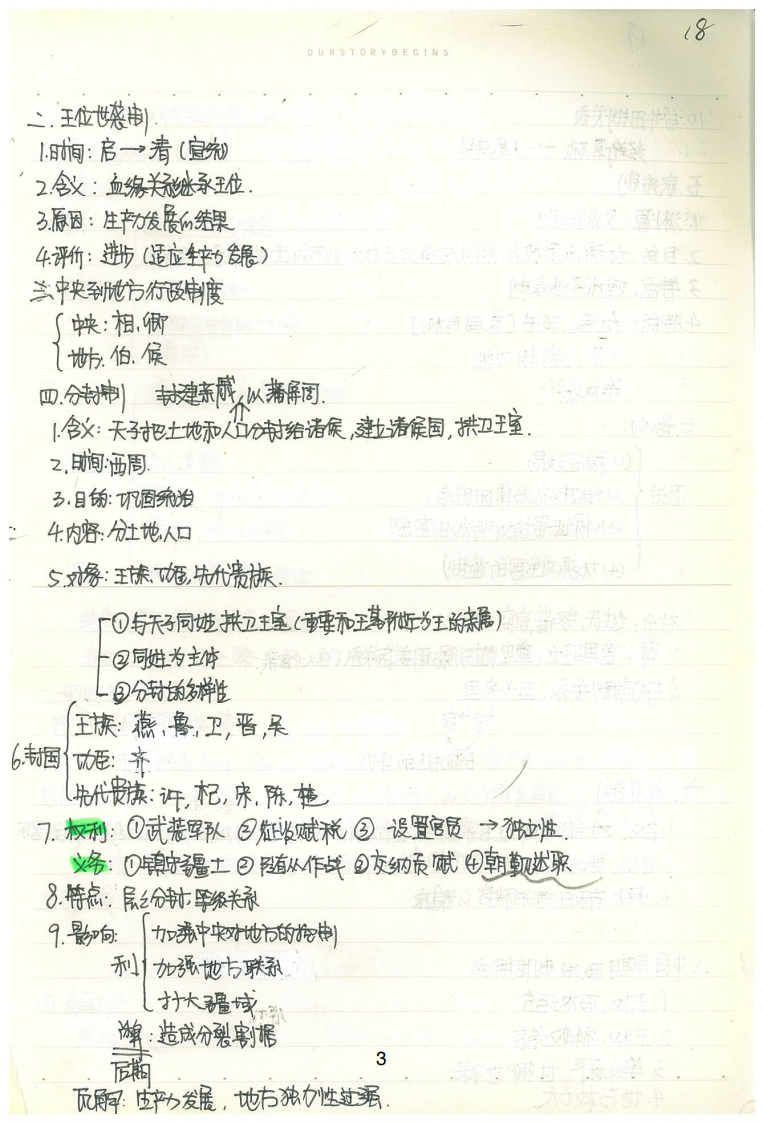 18
OURSTORYBEGINS
二. 王位世袭制.
1.时间: 启→清(宣统)
2.含义: 血缘关系继承王位.
3.原因: 生产力发展的结果
4.评价: 进步(适应生产力发展)
三.中央到地方行政制度
中央: 相、卿
地方: 伯、侯
四.分封制 封建亲戚,以蕃屏周.
1.含义: 天子把土地和人口分封给诸侯,建立诸侯国,拱卫王室.
2.时间:西周.
3.目的: 巩固统治
4.内容: 分土地、人口
5.对象: 王族、功臣、先代贵族.
①与天子同姓,拱卫王室(重要和王畿附近为王的亲属)
②同姓为主体
③分封的多样性
6.封国
王族: 燕、鲁、卫,晋,吴
功臣: 齐
先代贵族: 许,杞,宋,陈,楚
7.权利: ①武装军队 ②征收赋税 ③设置官员 →独立性.
义务: ①镇守疆土 ②随从作战 ③交纳贡赋 ④朝觐述职
8.特点: 层层分封,等级关系
9.影响:
利
加强中央对地方的控制
加强地方联系
扩大疆域
弊: 造成分裂割据
后期
瓦解: 生产力发展, 地方独立性过强.
3